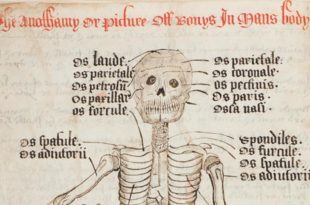 The Anothamy Or picture Off bonys In Mans body
Os laude.
Os parietale.
Os petrosu.
Os paxillar
Os forcule.
Os spatule.
Os adiutorii
Os parietale.
Os coronale.
Os pectinis.
Os paris.
Os ca nasi.
Spondiles.
Os furcule.
Os spatule.
Os adiutorii